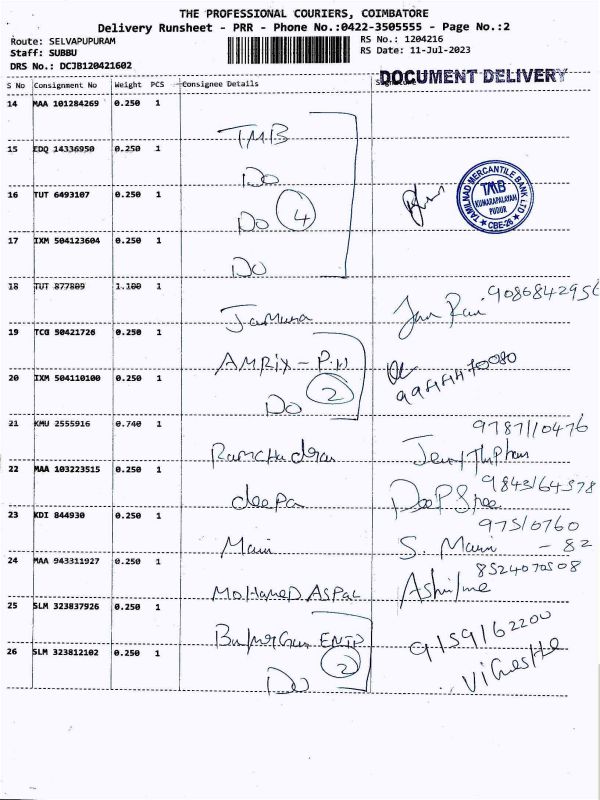 THE PROFESSIONAL COURIERS, COIMBATORE
Delivery Runsheet - PRR - Phone No.:0422-3505555 - Page No.:2
Route: SELVAPUPURAM
RS No.: 1204216
Staff: SUBBU
RS Date: 11-Jul-2023
DRS No.: DCJB120421602
DOCUMENT DELIVERY
S No Consignment No Weight PCS Consignee Details
14 MAA 101284269 0.250 1
TMB
15 EDQ 14336950 0.250 1
Do
16 TUT 6493107 0.250 1
Do 4
TAMILNAD MERCANTILE BANK LTD
TMB
KUMARAPALAYAM
PUDUR
CBE-26
17 IXM 504123604 0.250 1
Do
18 TUT 877809 1.100 1
Jamuna
9086842956
19 TCG 50421726 0.250 1
AMRIX - P.N
20 IXM 504110100 0.250 1
Do 2
21 KMU 2555916 0.740 1
9787110476
22 MAA 103223515 0.250 1
deepa
9843164578
23 KDI 844930 0.250 1
Mani
97510760
S. Mani - 82
24 MAA 943311927 0.250 1
MOHAMED ASPAL
8524070508
25 SLM 323837926 0.250 1
9159162200
26 SLM 323812102 0.250 1
Do 2